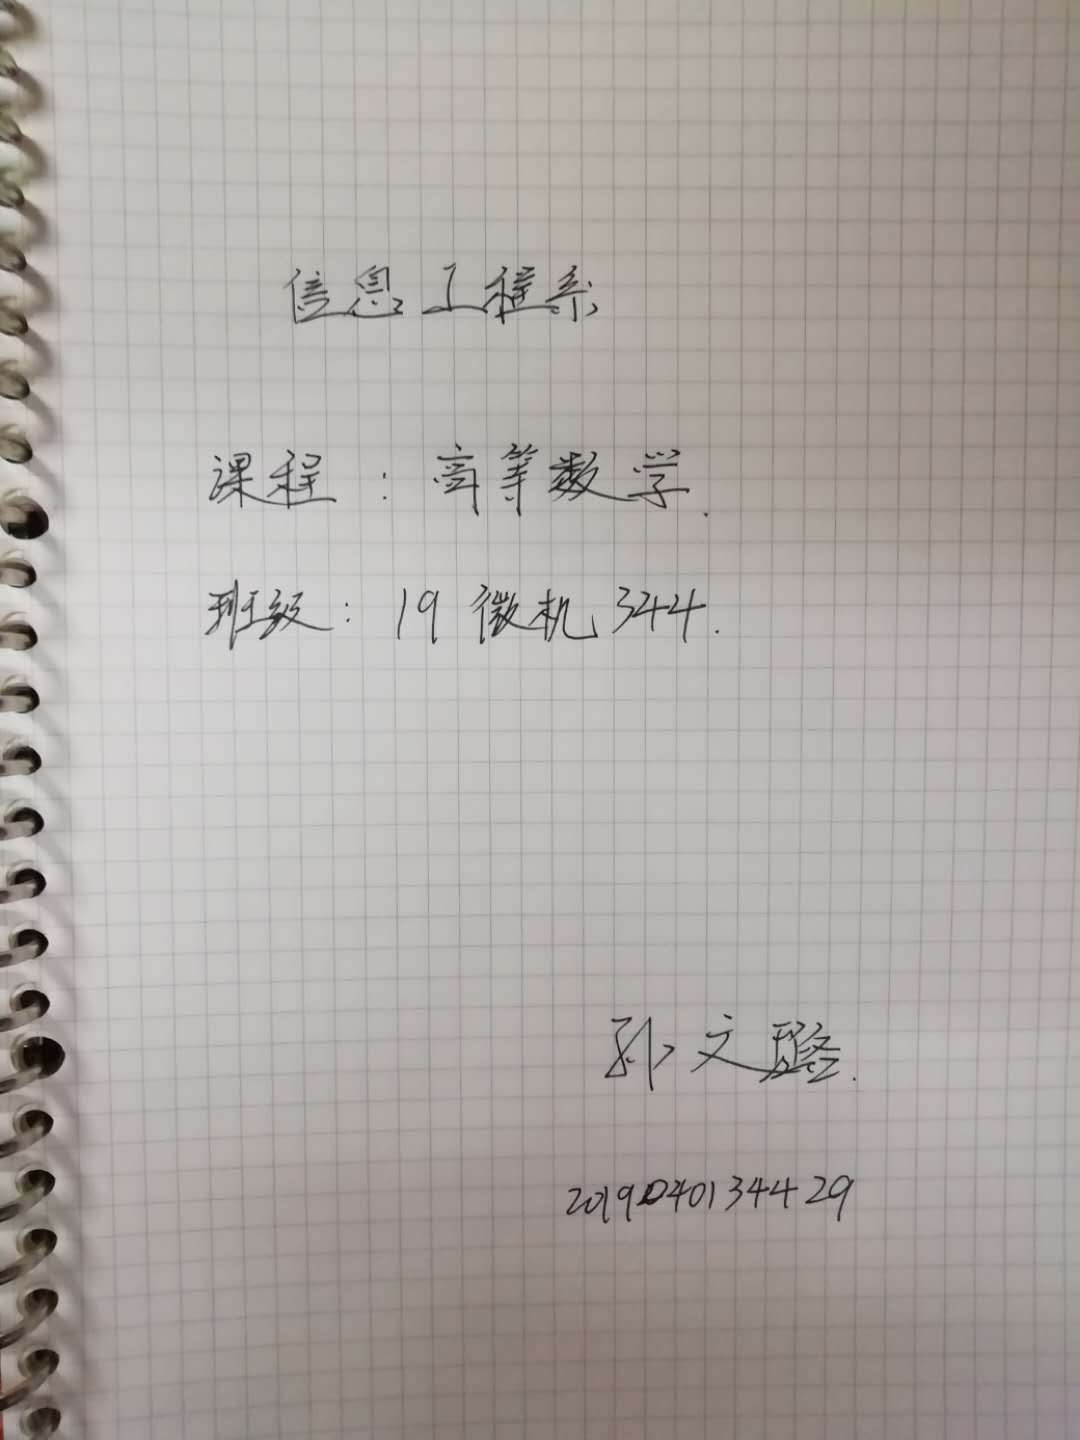 信息工程系
课程：高等数学.
班级：19微机344.
孙文.
2019040134429